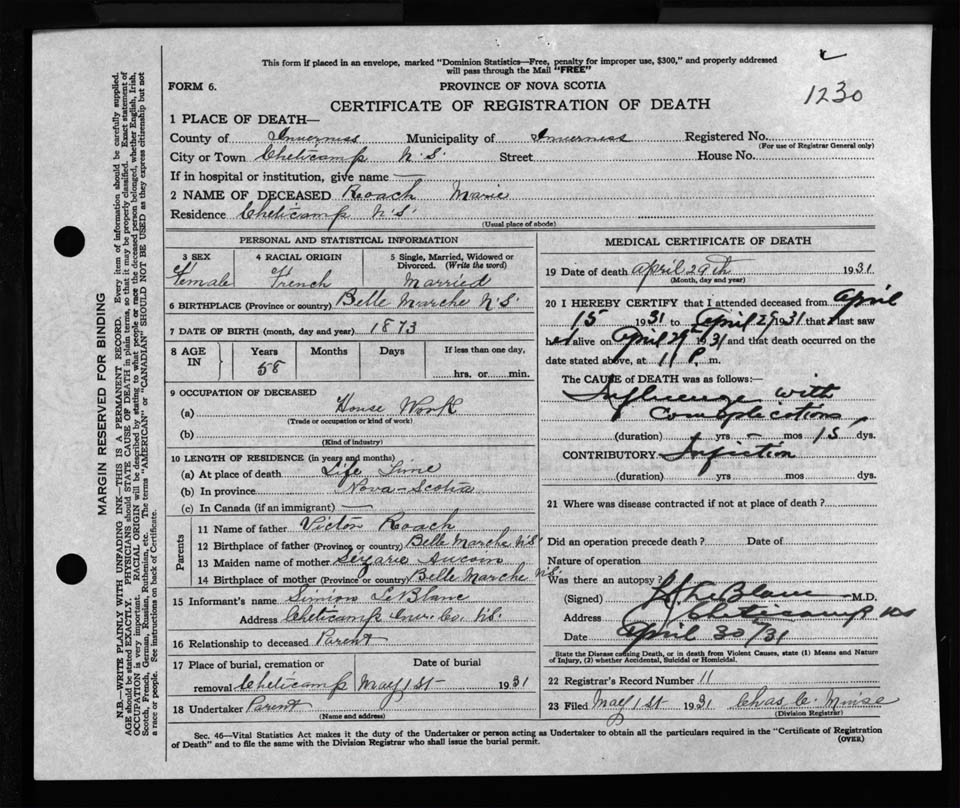 This form if placed in an envelope, marked "Dominion Statistics—Free, penalty for improper use, $300," and properly addressed
will pass through the Mail "FREE"
FORM 6.
PROVINCE OF NOVA SCOTIA
1230
CERTIFICATE OF REGISTRATION OF DEATH
1 PLACE OF DEATH—
County of Inverness Municipality of Inverness Registered No.
(For use of Registrar General only)
City or Town Cheticamp N.S. Street House No.
If in hospital or institution, give name —
2 NAME OF DECEASED Roach Marie
Residence Cheticamp N.S.
(Usual place of abode)
PERSONAL AND STATISTICAL INFORMATION
3 SEX
Female
4 RACIAL ORIGIN
French
5 Single, Married, Widowed or
Divorced. (Write the word)
Married
6 BIRTHPLACE (Province or country) Belle Marche N.S.
7 DATE OF BIRTH (month, day and year) 1873
8 AGE IN
Years Months Days If less than one day,
58
hrs. or min.
9 OCCUPATION OF DECEASED
(a) House Work
(Trade or occupation or kind of work)
(b)
(Kind of industry)
10 LENGTH OF RESIDENCE (in years and months)
(a) At place of death Life Time
(b) In province Nova-Scotia
(c) In Canada (if an immigrant) —
Parents
11 Name of father Victor Roach
12 Birthplace of father (Province or country) Belle Marche N.S.
13 Maiden name of mother Aucoin
14 Birthplace of mother (Province or country) Belle Marche N.S.
15 Informant's name Simion LeBlanc
Address Cheticamp Inver. Co. N.S.
16 Relationship to deceased Parent
17 Place of burial, cremation or Date of burial
removal Cheticamp May 1st 1931
18 Undertaker Parent
(Name and address)
MEDICAL CERTIFICATE OF DEATH
19 Date of death April 29th 1931
(Month, day and year)
20 I HEREBY CERTIFY that I attended deceased from April
15 1931 to April 29 1931 that I last saw
her alive on April 29th 1931 and that death occurred on the
date stated above, at 11 P. m.
The CAUSE of DEATH was as follows:—
Influenza with
Complications
(duration) yrs — mos 15 dys.
CONTRIBUTORY. Infection
(duration) yrs mos dys.
21 Where was disease contracted if not at place of death?
Did an operation precede death? Date of
Nature of operation
Was there an autopsy?
(Signed) LeBlanc M.D.
Address Cheticamp NS
Date April 30th/31
State the Disease causing Death, or in death from Violent Causes, state (1) Means and Nature
of Injury, (2) whether Accidental, Suicidal or Homicidal.
22 Registrar's Record Number 11
23 Filed May 1st 1931 Chas C.
(Division Registrar)
Sec. 46—Vital Statistics Act makes it the duty of the Undertaker or person acting as Undertaker to obtain all the particulars required in the "Certificate of Registration
of Death" and to file the same with the Division Registrar who shall issue the burial permit.
(OVER)
MARGIN RESERVED FOR BINDING
N.B.—WRITE PLAINLY WITH UNFADING INK—THIS IS A PERMANENT RECORD. Every item of information should be carefully supplied.
AGE should be stated EXACTLY. PHYSICIANS should STATE CAUSE OF DEATH in plain terms, so that it may be properly classified. Exact statement of
OCCUPATION is very important. RACIAL ORIGIN will be described by stating to what people or race the deceased person belonged, whether English, Irish,
Scotch, French, German, Russian, Ruthenian, etc. The terms "AMERICAN" or "CANADIAN" SHOULD NOT BE USED as they express citizenship but not
a race or people. See instructions on back of Certificate.